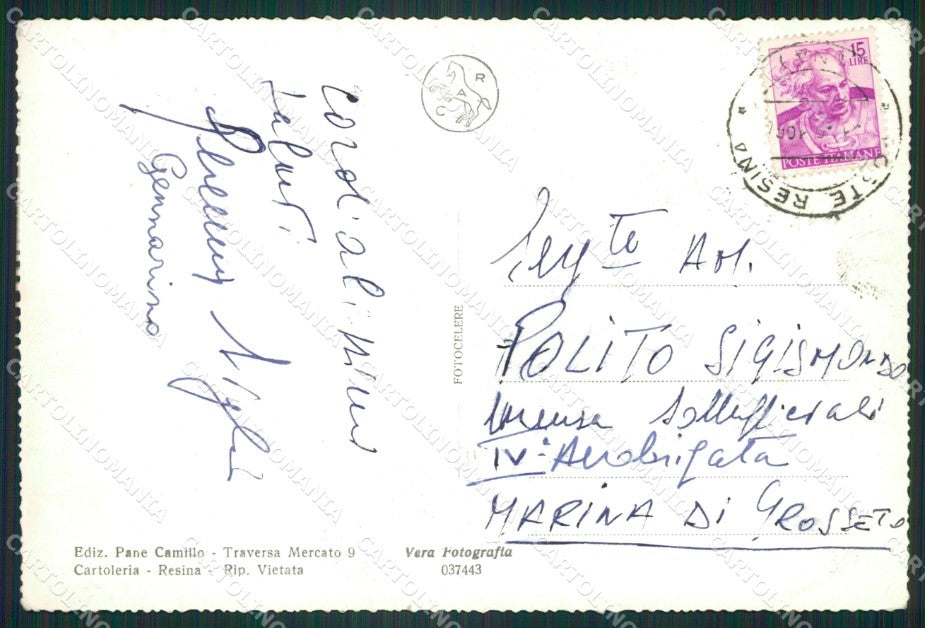 Cordialissimi
Saluti
Gennarino
RAC
15
LIRE
POSTE ITALIANE
POSTE RESINA
FOTOCELERE
POLITO SIGISMONDO
Mensa Sottufficiali
IV-Aerobrigata
MARINA DI GROSSETO
Ediz. Pane Camillo - Traversa Mercato 9
Cartoleria - Resina - Rip. Vietata
Vera Fotografia
037443
CARTOLINOMANIA